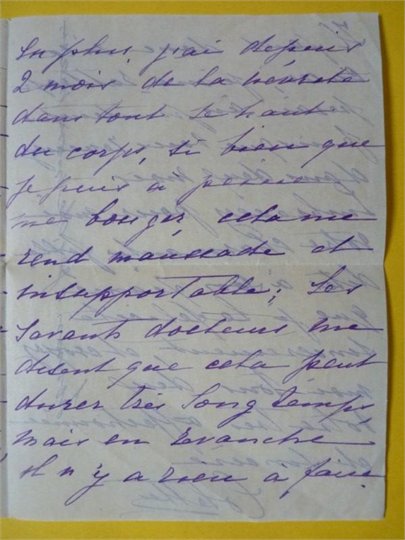 En plus, j'ai depuis
2 mois de la névrite
dans tout le haut
du corps, si bien que
je puis à peine
me bouger, cela me
rend maussade et
insupportable; les
savants docteurs me
disent que cela peut
durer très longtemps
mais en revanche
il n'y a rien à faire.